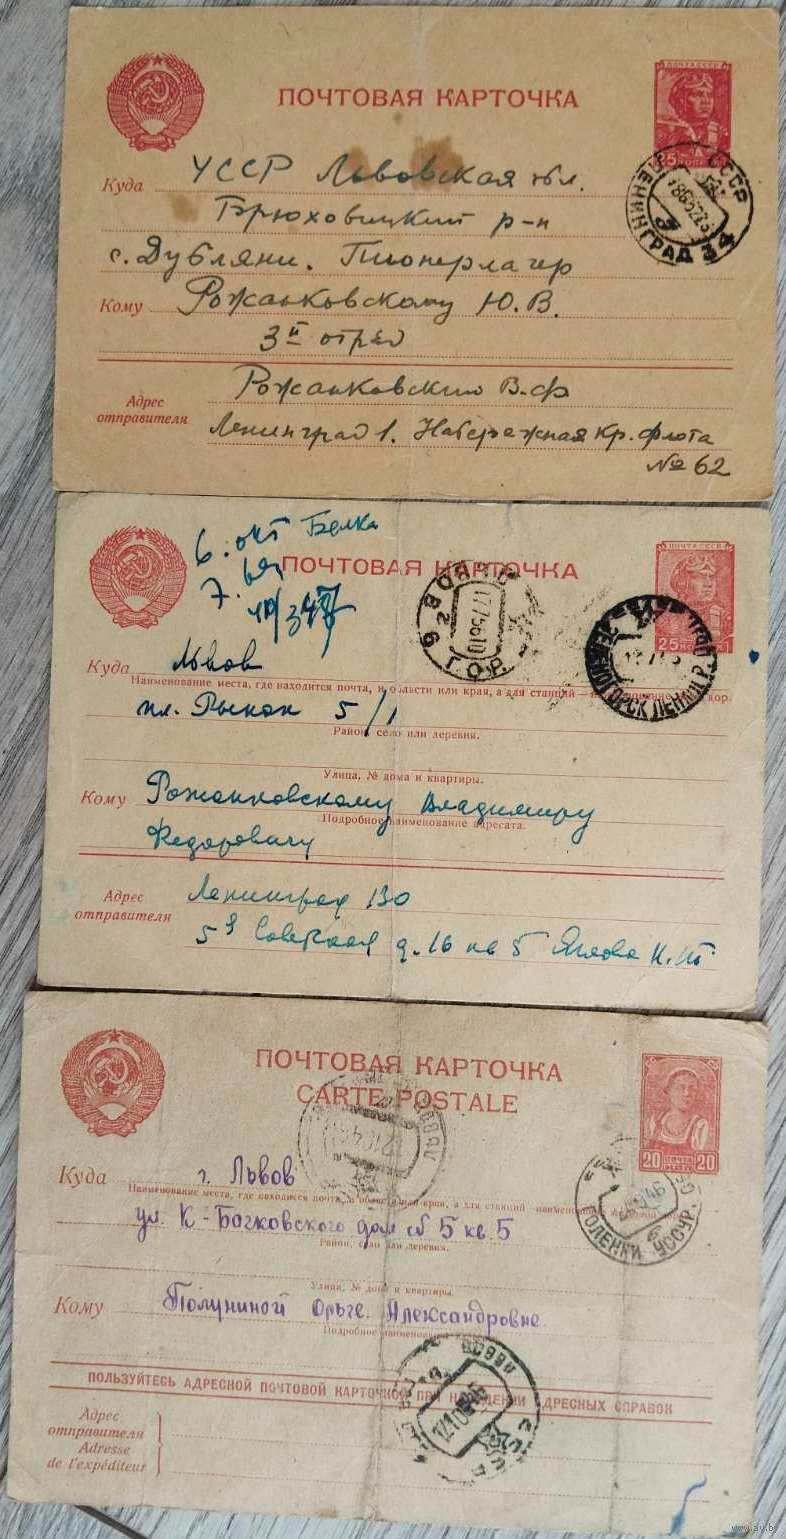 ПОЧТОВАЯ КАРТОЧКА
ПОЧТА СССР
25 КОПЕЕК
Куда УССР Львовская обл.
СССР ЛЕНИНГРАД 34
Брюховицкий р-н
с. Дубляни. Пионерлагер
Кому Рожанковскому Ю.В.
3й отряд
Адрес отправителя
Рожанковский В.Ф
Ленинград 1. Набережная Кр. Флота
№ 62
6. окт Белка
7.
ПОЧТОВАЯ КАРТОЧКА
ПОЧТА СССР
25
ЛЬВОВ
1775610
ГОР.
Куда Львов
Наименование места, где находится почта, и области или края, а для станций —
пл. Рынок 5/1
Район, село или деревня.
Улица, № дома и квартиры.
Кому Рожанковскому Владимиру
Подробное наименование адресата.
Федоровичу
Адрес отправителя
Ленинград 130
5я Советская д. 16 кв 5
ПОЧТОВАЯ КАРТОЧКА
CARTE POSTALE
20 ПОЧТА 20
Куда г. Львов
Наименование места, где находится почта, и области или края, а для станций
ул. К-Бачковского дом 5 кв. 5
Район, село или деревня.
Улица, № дома и квартиры
Кому Полуниной Ольге Александровне
Подробное наименование
ПОЛЬЗУЙТЕСЬ АДРЕСНОЙ ПОЧТОВОЙ КАРТОЧКОЙ ПРИ НАВЕДЕНИИ АДРЕСНЫХ СПРАВОК
Адрес отправителя
Adresse de l'expéditeur
www.ay.by